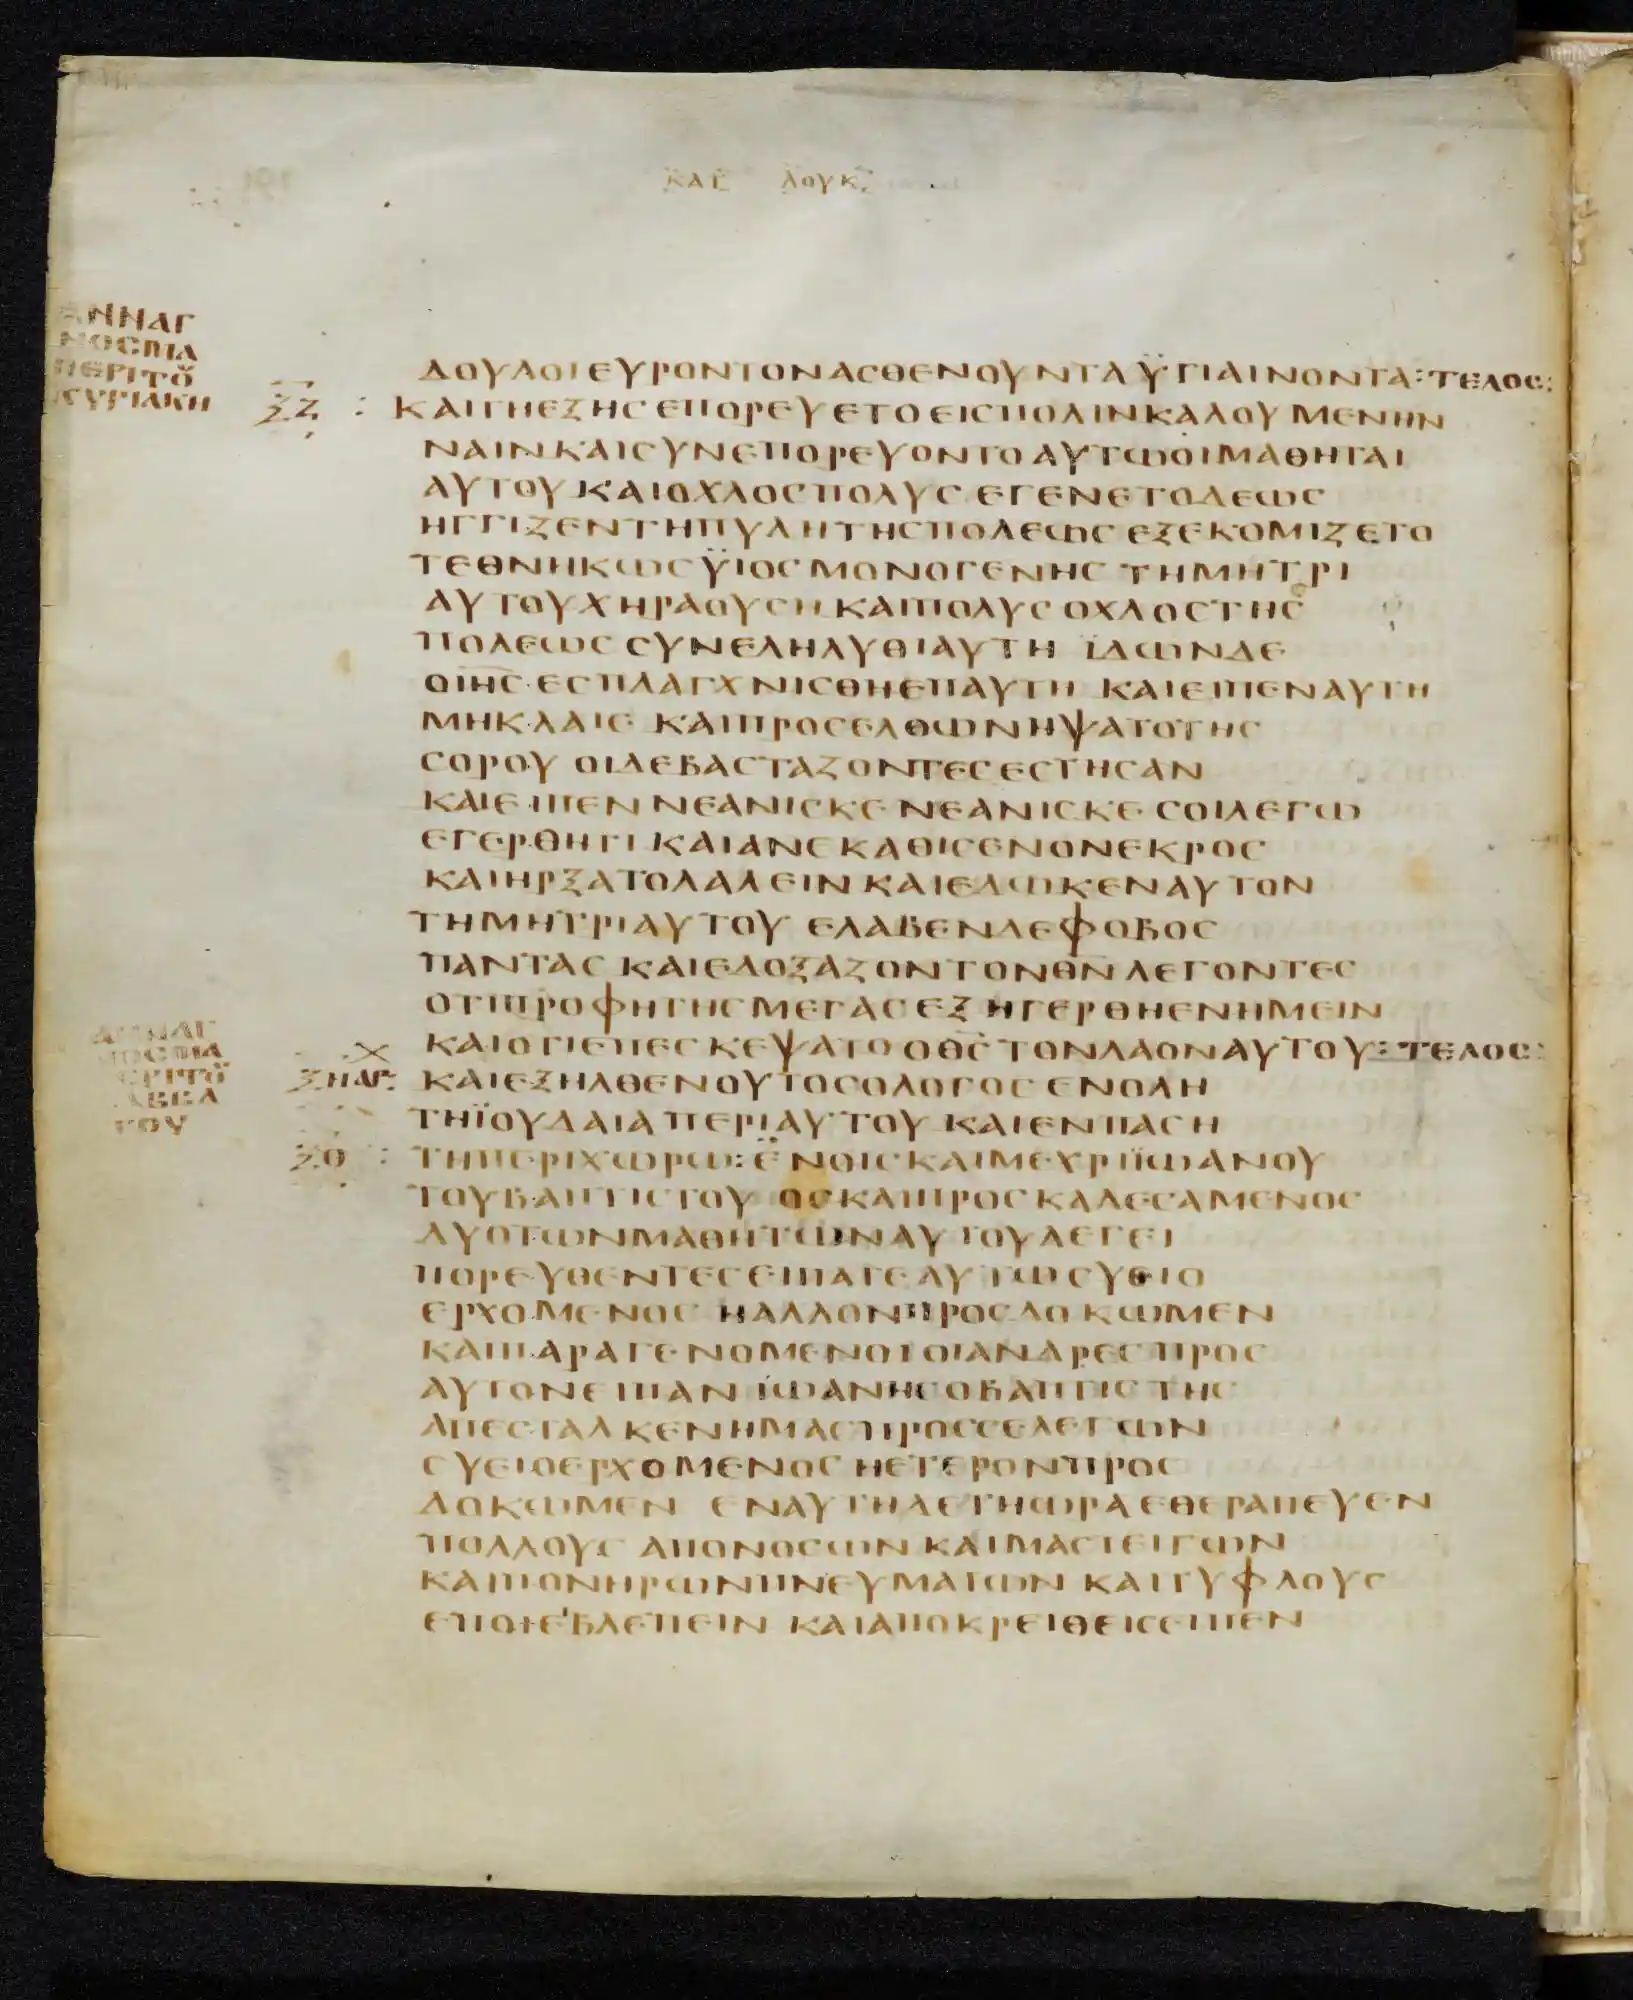 ΚΑΤ ΛΟΥΚ
ΑΝΝΑΓ
ΝΟСΜΑ
ΠΕΡΙΤΟΥ
ΚΥΡΙΑΚΗ
ΔΟΥΛΟΙΕΥΡΟΝΤΟΝΑСΘΕΝΟΥΝΤΑΫΓΙΑΙΝΟΝΤΑ:ΤΕΛΟС:
ΞΖ : ΚΑΙΤΗΕΞΗСΕΠΟΡΕΥΕΤΟΕΙСΠΟΛΙΝΚΑΛΟΥΜΕΝΗΝ
ΝΑΙΝΚΑΙСΥΝΕΠΟΡΕΥΟΝΤΟΑΥΤΩΟΙΜΑΘΗΤΑΙ
ΑΥΤΟΥΚΑΙΟΧΛΟСΠΟΛΥС ΕΓΕΝΕΤΟΔΕΩС
ΗΓΓΙΖΕΝΤΗΠΥΛΗΤΗСΠΟΛΕΩС ΕΞΕΚΟΜΙΖΕΤΟ
ΤΕΘΝΗΚΩСΫΙΟСΜΟΝΟΓΕΝΗС ΤΗΜΗΤΡΙ
ΑΥΤΟΥΧΗΡΑΟΥСΗ ΚΑΙΠΟΛΥС ΟΧΛΟСΤΗС
ΠΟΛΕΩС СΥΝΕΛΗΛΥΘΙΑΥΤΗ ΪΔΩΝΔΕ
ΟΙΗС ΕСΠΛΑΓΧΝΙСΘΗΕΠΑΥΤΗ ΚΑΙΕΙΠΕΝΑΥΤΗ
ΜΗΚΛΑΙΕ ΚΑΙΠΡΟСΕΛΘΩΝΗΨΑΤΟΤΗС
СΟΡΟΥ ΟΙΔΕΒΑСΤΑΖΟΝΤΕСΕСΤΗСΑΝ
ΚΑΙΕΙΠΕΝ ΝΕΑΝΙСΚΕ ΝΕΑΝΙСΚΕ СΟΙΛΕΓΩ
ΕΓΕΡΘΗΤΙ ΚΑΙΑΝΕΚΑΘΙСΕΝΟΝΕΚΡΟС
ΚΑΙΗΡΞΑΤΟΛΑΛΕΙΝ ΚΑΙΕΔΩΚΕΝΑΥΤΟΝ
ΤΗΜΗΤΡΙΑΥΤΟΥ ΕΛΑΒΕΝΔΕΦΟΒΟС
ΠΑΝΤΑС ΚΑΙΕΔΟΞΑΖΟΝΤΟΝΘΝ ΛΕΓΟΝΤΕС
ΟΤΙΠΡΟΦΗΤΗСΜΕΓΑСΕΞΗΓΕΡΘΗΕΝΗΜΕΙΝ
ΚΑΙΟΤΙΕΠΕСΚΕΨΑΤΟ ΟΘС ΤΟΝΛΑΟΝΑΥΤΟΥ:ΤΕΛΟС:
ΑΝΝΑΓ
ΝΟСΜΑ
ΠΕΡΙΤΟΥ
ΑΒΒΑ
ΤΟΥ
ΞΗΑΡ: ΚΑΙΕΞΗΛΘΕΝΟΥΤΟСΟΛΟΓΟС ΕΝΟΛΗ
ΤΗΪΟΥΔΑΙΑΠΕΡΙΑΥΤΟΥ ΚΑΙΕΝΠΑСΗ
ΞΘ : ΤΗΠΕΡΙΧΩΡΩ:ΕΝΟΙСΚΑΙΜΕΧΡΙΪΩΑΝΟΥ
ΤΟΥΒΑΠΤΙСΤΟΥ ΟСΚΑΙΠΡΟСΚΑΛΕСΑΜΕΝΟС
ΔΥΟΤΩΝΜΑΘΗΤΩΝΑΥΤΟΥΛΕΓΕΙ
ΠΟΡΕΥΘΕΝΤΕСΕΙΠΑΤΕΑΥΤΩСΥΘΙΟ
ΕΡΧΟΜΕΝΟС ΗΑΛΛΟΝΠΡΟСΔΟΚΩΜΕΝ
ΚΑΙΠΑΡΑΓΕΝΟΜΕΝΟΙΟΙΑΝΔΡΕСΠΡΟС
ΑΥΤΟΝΕΙΠΑΝ ΪΩΑΝΗСΟΒΑΠΤΙСΤΗС
ΑΠΕСΤΑΛΚΕΝΗΜΑСΠΡΟССΕΛΕΓΩΝ
СΥΕΙΟΕΡΧΟΜΕΝΟСΗΕΤΕΡΟΝΠΡΟС
ΔΟΚΩΜΕΝ ΕΝΑΥΤΗΔΕΤΗΩΡΑΕΘΕΡΑΠΕΥΕΝ
ΠΟΛΛΟΥС ΑΠΟΝΟСΩΝ ΚΑΙΜΑСΤΕΙΓΩΝ
ΚΑΙΠΟΝΗΡΩΝΠΝΕΥΜΑΤΩΝ ΚΑΙΤΥΦΛΟΥС
ΕΠΟΙΕΙΒΛΕΠΕΙΝ ΚΑΙΑΠΟΚΡΕΙΘΕΙСΕΙΠΕΝ